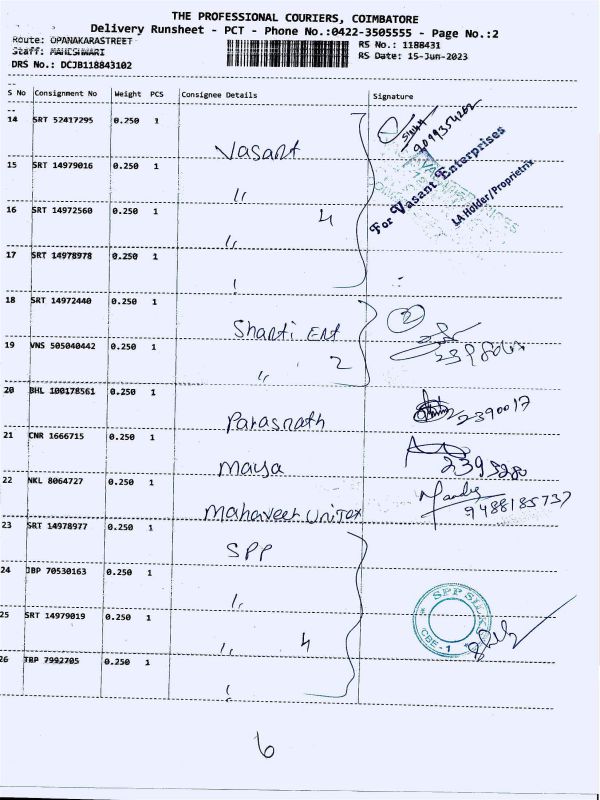 THE PROFESSIONAL COURIERS, COIMBATORE
Delivery Runsheet - PCT - Phone No.:0422-3505555 - Page No.:2
Route: OPANAKARASTREET
Staff: MAHESHWARI
DRS No.: DCJB118843102
RS No.: 1188431
RS Date: 15-Jun-2023
S No Consignment No Weight PCS Consignee Details Signature
14 SRT 52417295 0.250 1 Vasant
15 SRT 14979016 0.250 1 ,,
16 SRT 14972560 0.250 1 ,, 4
17 SRT 14978978 0.250 1
For Vasant Enterprises
LA Holder/Proprietrix
18 SRT 14972440 0.250 1 Shanti Ent 2
19 VNS 505040442 0.250 1 ,, 2
20 BHL 100178561 0.250 1 Parasnath 2390017
21 CNR 1666715 0.250 1 Maya 2395280
22 NKL 8064727 0.250 1 Mahaveer Unitex 9488185737
23 SRT 14978977 0.250 1 SPP
24 JBP 70530163 0.250 1 ,,
25 SRT 14979019 0.250 1 ,, 4
26 TBP 7992705 0.250 1
* SPP SILK *
CBE - 1
6